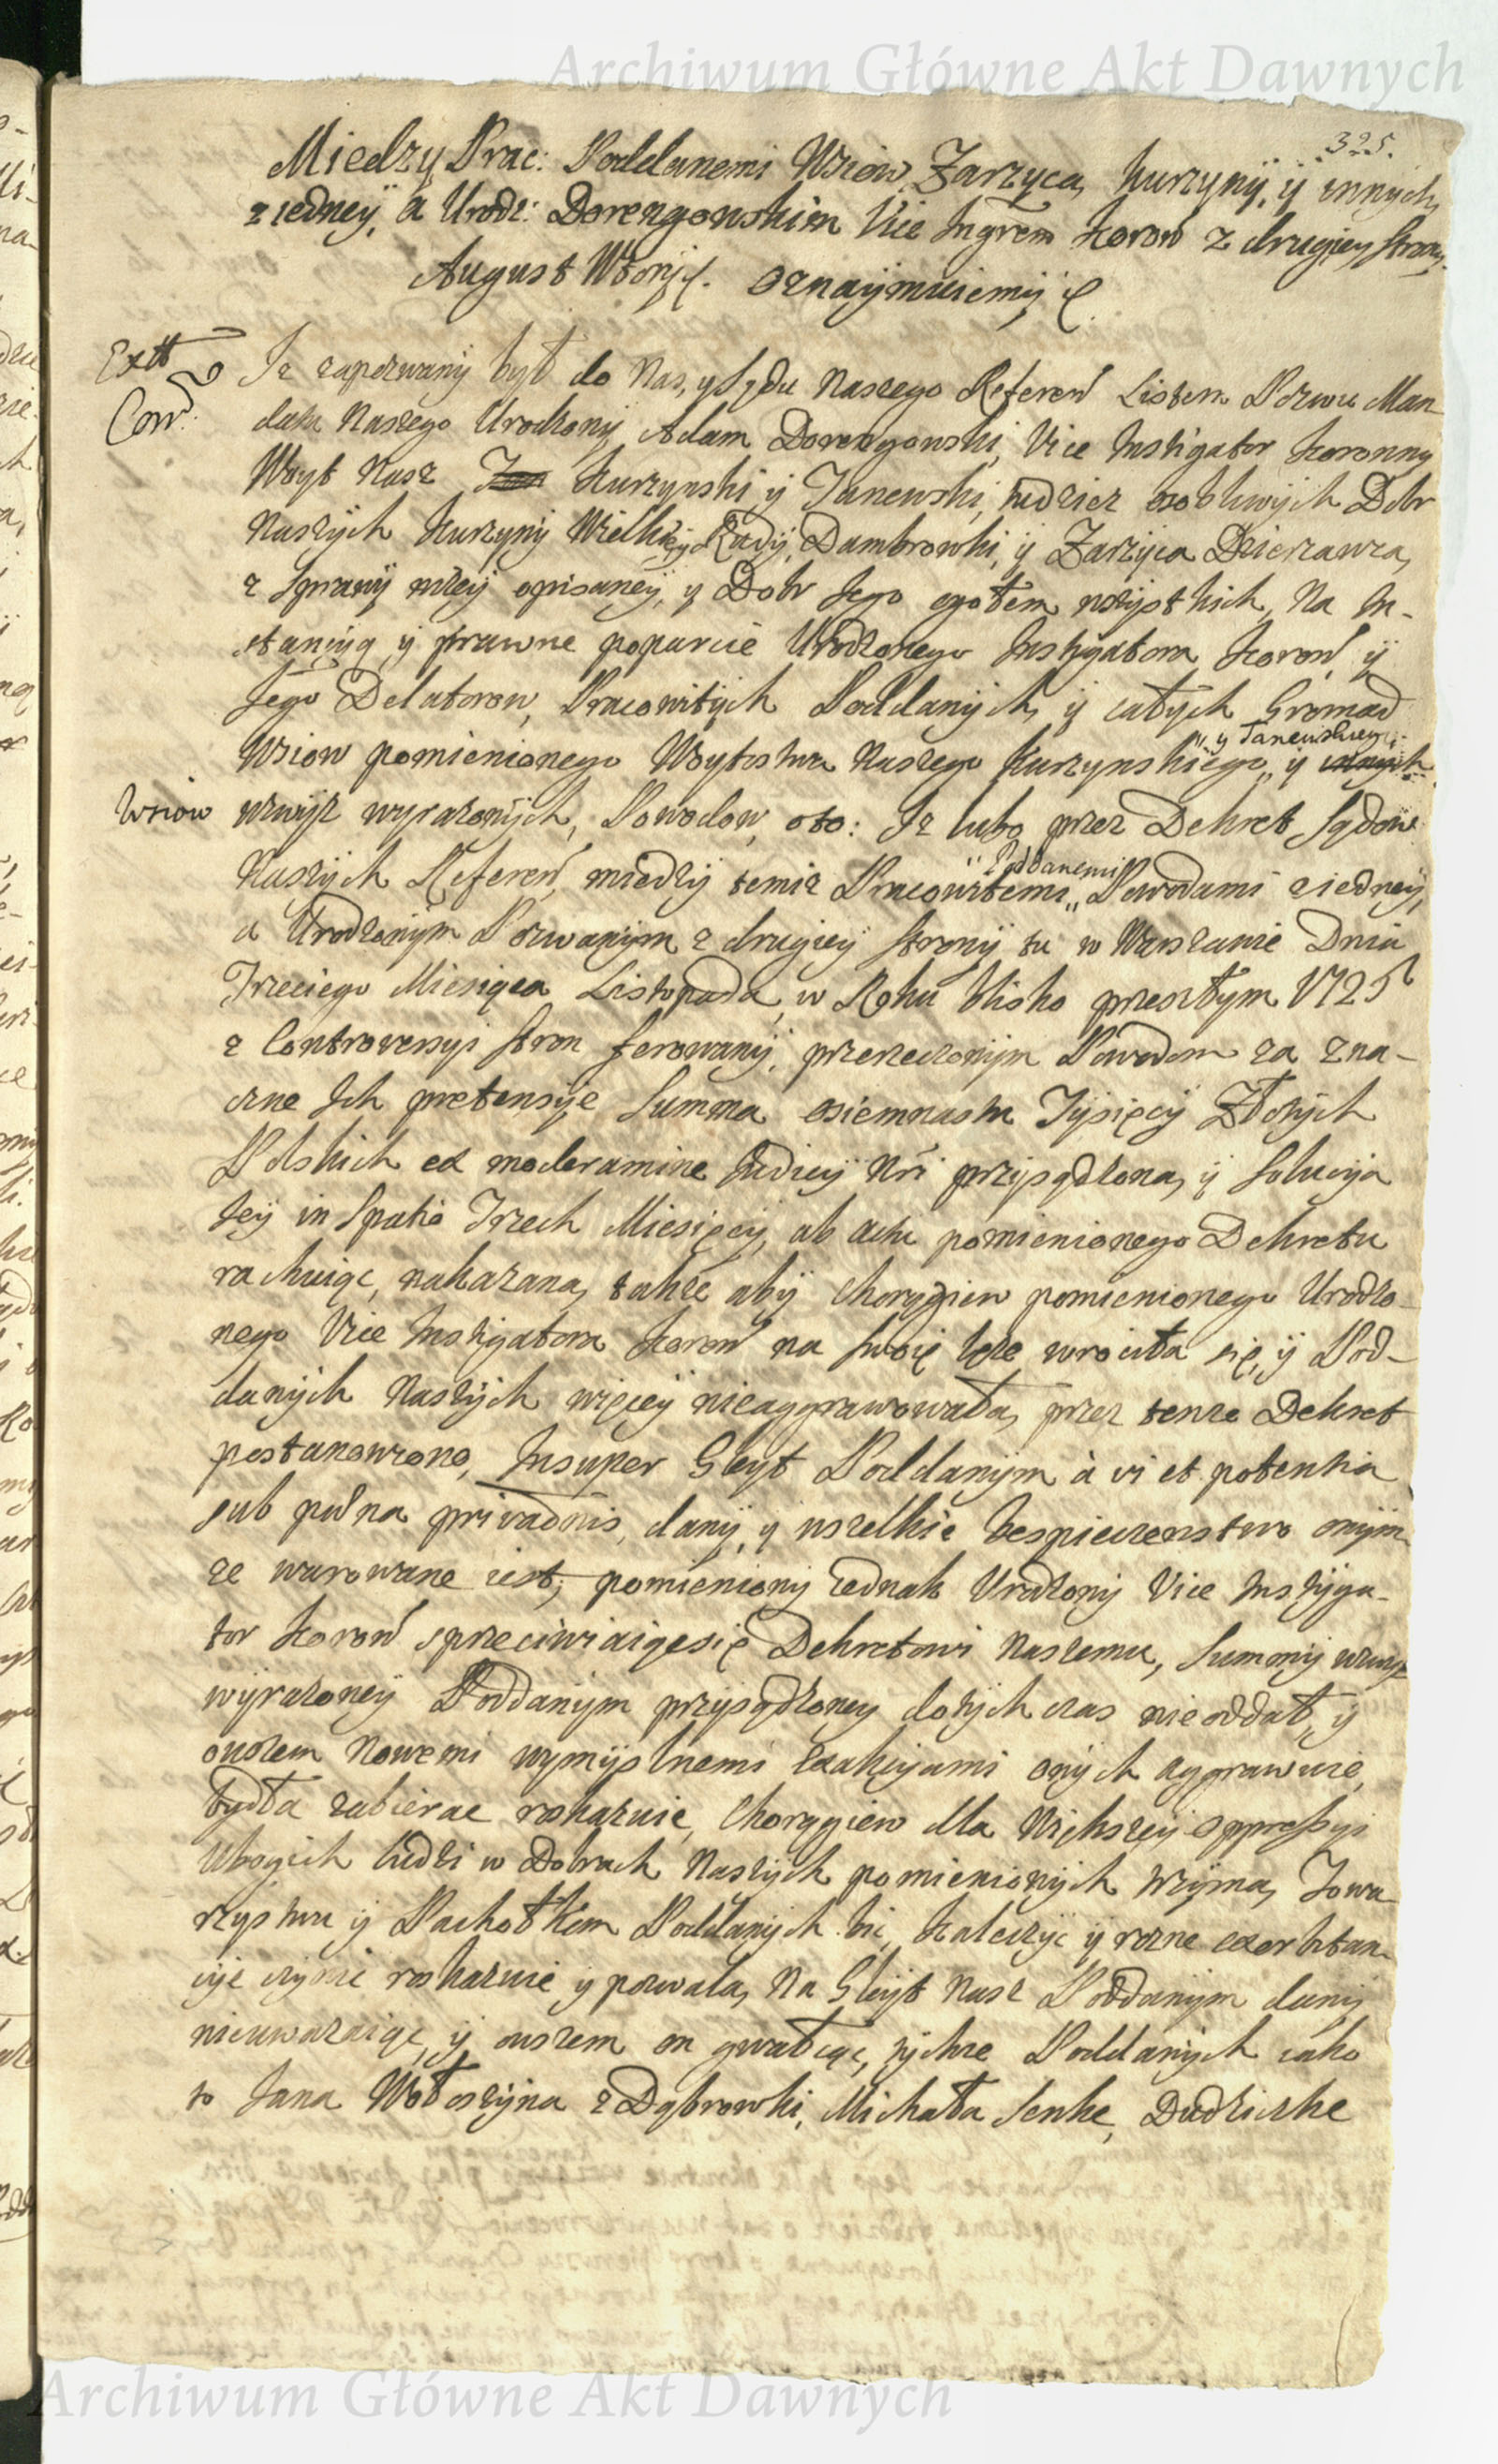 Archiwum Główne Akt Dawnych
325.
Między Prac: Poddanemi Wsiow Zarzyca, Kurzyny, y innych
z iedney, a Urodz: Dorengowskim Vice Ingrem Koron z drugiey strony.
August Wtory &. Oznaymuiemy &.
Extt
Conv:
Iz zapozwany był do Nas, y Sądu Naszego Referen Listem Pozwu Man
datu Naszego Urodzony Adam Dorengowski, Vice Instigator Koronny
Woyt Nasz Kurzynski y Janewski, tudziez osobliwych Dobr
Naszych Kurzyny Wielkiey, Rudy, Dambrowki, y Zarzyca Dzierzawca,
z sprawy nizey opisaney, y Dobr Jego ogołem wszystkich, Na In-
stancyą y prawne poparcie Urodzonego Instygatora Koron y
Jego Delatorow, Pracowitych Poddanych, y całych Gromad
Wsiow pomienionego Woytostwa Naszego Kurzynskiego " y Janewskiego " y
Wsiow wzwyz wyrazonych, Powodow, oto: Iz lubo przez Dekret Sądow
Naszych Referen, miedzy temiz Pracowitemi " Poddanemi " Powodami z iedney,
a Urodzonym Pozwanym z drugiey strony tu w Warszawie Dnia
Trzeciego Miesiąca Listopada, w Roku blisko przeszłym 1725
z Controversyi stron ferowany, przerzeczonym Powodom za zna-
czne Ich pretensye Summa osiemnastu Tysięcy Złotych
Polskich ex moderamine Judicij Nri przysądzona, y solucya
Jey in spatio Trzech Miesięcy, ab actu pomienionego Dekretu
rachuiąc, nakazana, takze aby Chorągiew pomienionego Urodzo-
nego Vice Instigatora Koron na swoię leze wrociła się, y Pod-
danych Naszych więcey nieaggrawowała, przez tenze Dekret
postanowiono, Insuper Gleyt Poddanym à vi et potentia
sub pœna privaonis, dany, y wszelkie bespieczenstwo onym
ze warowane iest, pomieniony iednak Urodzony Vice Instyga-
tor Koron sprzeciwiaiącsię Dekretowi Naszemu, Summy wzwyz
wyrazoney Poddanym przysądzoney dotych czas nieoddał, y
owszem Nowemi wymyslnemi exakcyami onych aggrawuie,
bydła zabierac roskazuie, Chorągiew dla Większey oppressyi
Ubogich ludzi w Dobrach Naszych pomienionych trzyma, Towa-
rzystwu y Pachołkom Poddanych bic, kaleczyc y rozne exorbitan-
cye czynic roskazuie y pozwala, Na Gleyt Nasz Poddanym dany
nieuwazaiąc, y owszem on gwałcąc, tychze Poddanych iako
to Jana Wołoszyna z Dąbrowki, Michała Senke, Dudziczke
Archiwum Główne Akt Dawnych